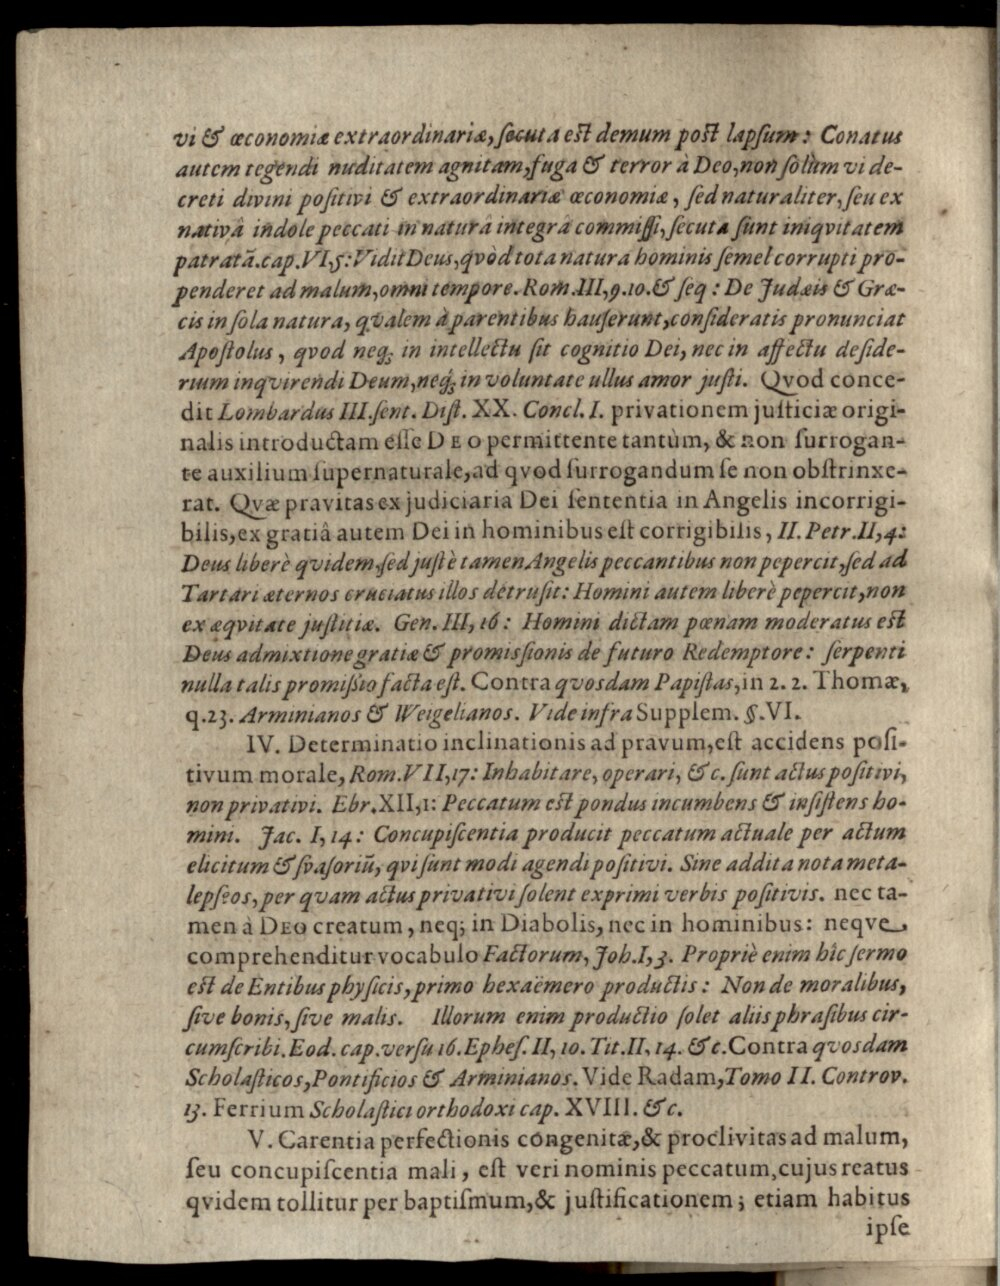 vi & œconomiæ extraordinariæ, ſecuta eſt demum poſt lapſum: Conatus
autem tegendi nuditatem agnitam, fuga & terror à Deo, non ſolùm vi de-
creti divini poſitivi & extraordinariæ œconomiæ, ſed naturaliter, ſeu ex
nativâ indole peccati in naturâ integrâ commiſſi, ſecuta ſunt iniqvitatem
patratã. cap. VI, 5: Vidit Deus, qvòd tota natura hominis ſemel corrupti pro-
penderet ad malum, omni tempore. Rom. III, 9. 10. & ſeq: De Judæis & Græ-
cis in ſola natura, qvalem à parentibus hauſerunt, conſideratis pronunciat
Apoſtolus, qvod neq; in intellectu ſit cognitio Dei, nec in affectu deſide-
rium inqvirendi Deum, neq; in voluntate ullus amor juſti. Qvod conce-
dit Lombardus III. ſent. Diſt. XX. Concl. I. privationem juſticiæ origi-
nalis introductam eſſe DEO permittente tantùm, & non ſurrogan-
te auxilium ſupernaturale, ad qvod ſurrogandum ſe non obſtrinxe-
rat. Qvæ pravitas ex judiciaria Dei ſententia in Angelis incorrigi-
bilis, ex gratiâ autem Dei in hominibus eſt corrigibilis, II. Petr. II, 4:
Deus liberè qvidem, ſed juſtè tamen Angelis peccantibus non pepercit, ſed ad
Tartari æternos cruciatus illos detruſit: Homini autem liberè pepercit, non
ex æqvitate juſtitiæ. Gen. III, 16: Homini dictam pœnam moderatus eſt
Deus admixtione gratiæ & promiſsionis de futuro Redemptore: ſerpenti
nulla talis promiſsio facta eſt. Contra qvosdam Papiſtas, in 2. 2. Thomæ,
q. 23. Arminianos & Weigelianos. Vide infra Supplem. §. VI.
IV. Determinatio inclinationis ad pravum, eſt accidens poſi-
tivum morale, Rom. VII, 17: Inhabitare, operari, &c. ſunt actus poſitivi,
non privativi. Ebr. XII, 1: Peccatum eſt pondus incumbens & inſiſtens ho-
mini. Jac. I, 14: Concupiſcentia producit peccatum actuale per actum
elicitum & ſvaſoriũ, qvi ſunt modi agendi poſitivi. Sine addita nota meta-
lepſeos, per qvam actus privativi ſolent exprimi verbis poſitivis. nec ta-
men à DEO creatum, neq; in Diabolis, nec in hominibus: neqve
comprehenditur vocabulo Factorum, Joh. I, 3. Propriè enim hîc ſermo
eſt de Entibus phyſicis, primo hexaëmero productis: Non de moralibus,
ſive bonis, ſive malis. Illorum enim productio ſolet aliis phraſibus cir-
cumſcribi. Eod. cap. verſu 16. Epheſ. II, 10. Tit. II, 14. &c. Contra qvosdam
Scholaſticos, Pontificios & Arminianos. Vide Radam, Tomo II. Controv.
13. Ferrium Scholaſtici orthodoxi cap. XVIII. &c.
V. Carentia perfectionis congenitæ, & proclivitas ad malum,
ſeu concupiſcentia mali, eſt veri nominis peccatum, cujus reatus
qvidem tollitur per baptiſmum, & juſtificationem; etiam habitus
ipſe